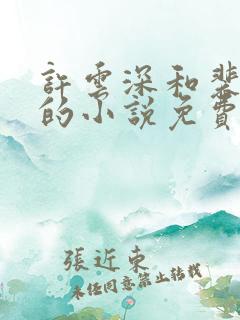 許雲深和裴
的小說免費
張近東
未經同意禁止轉載